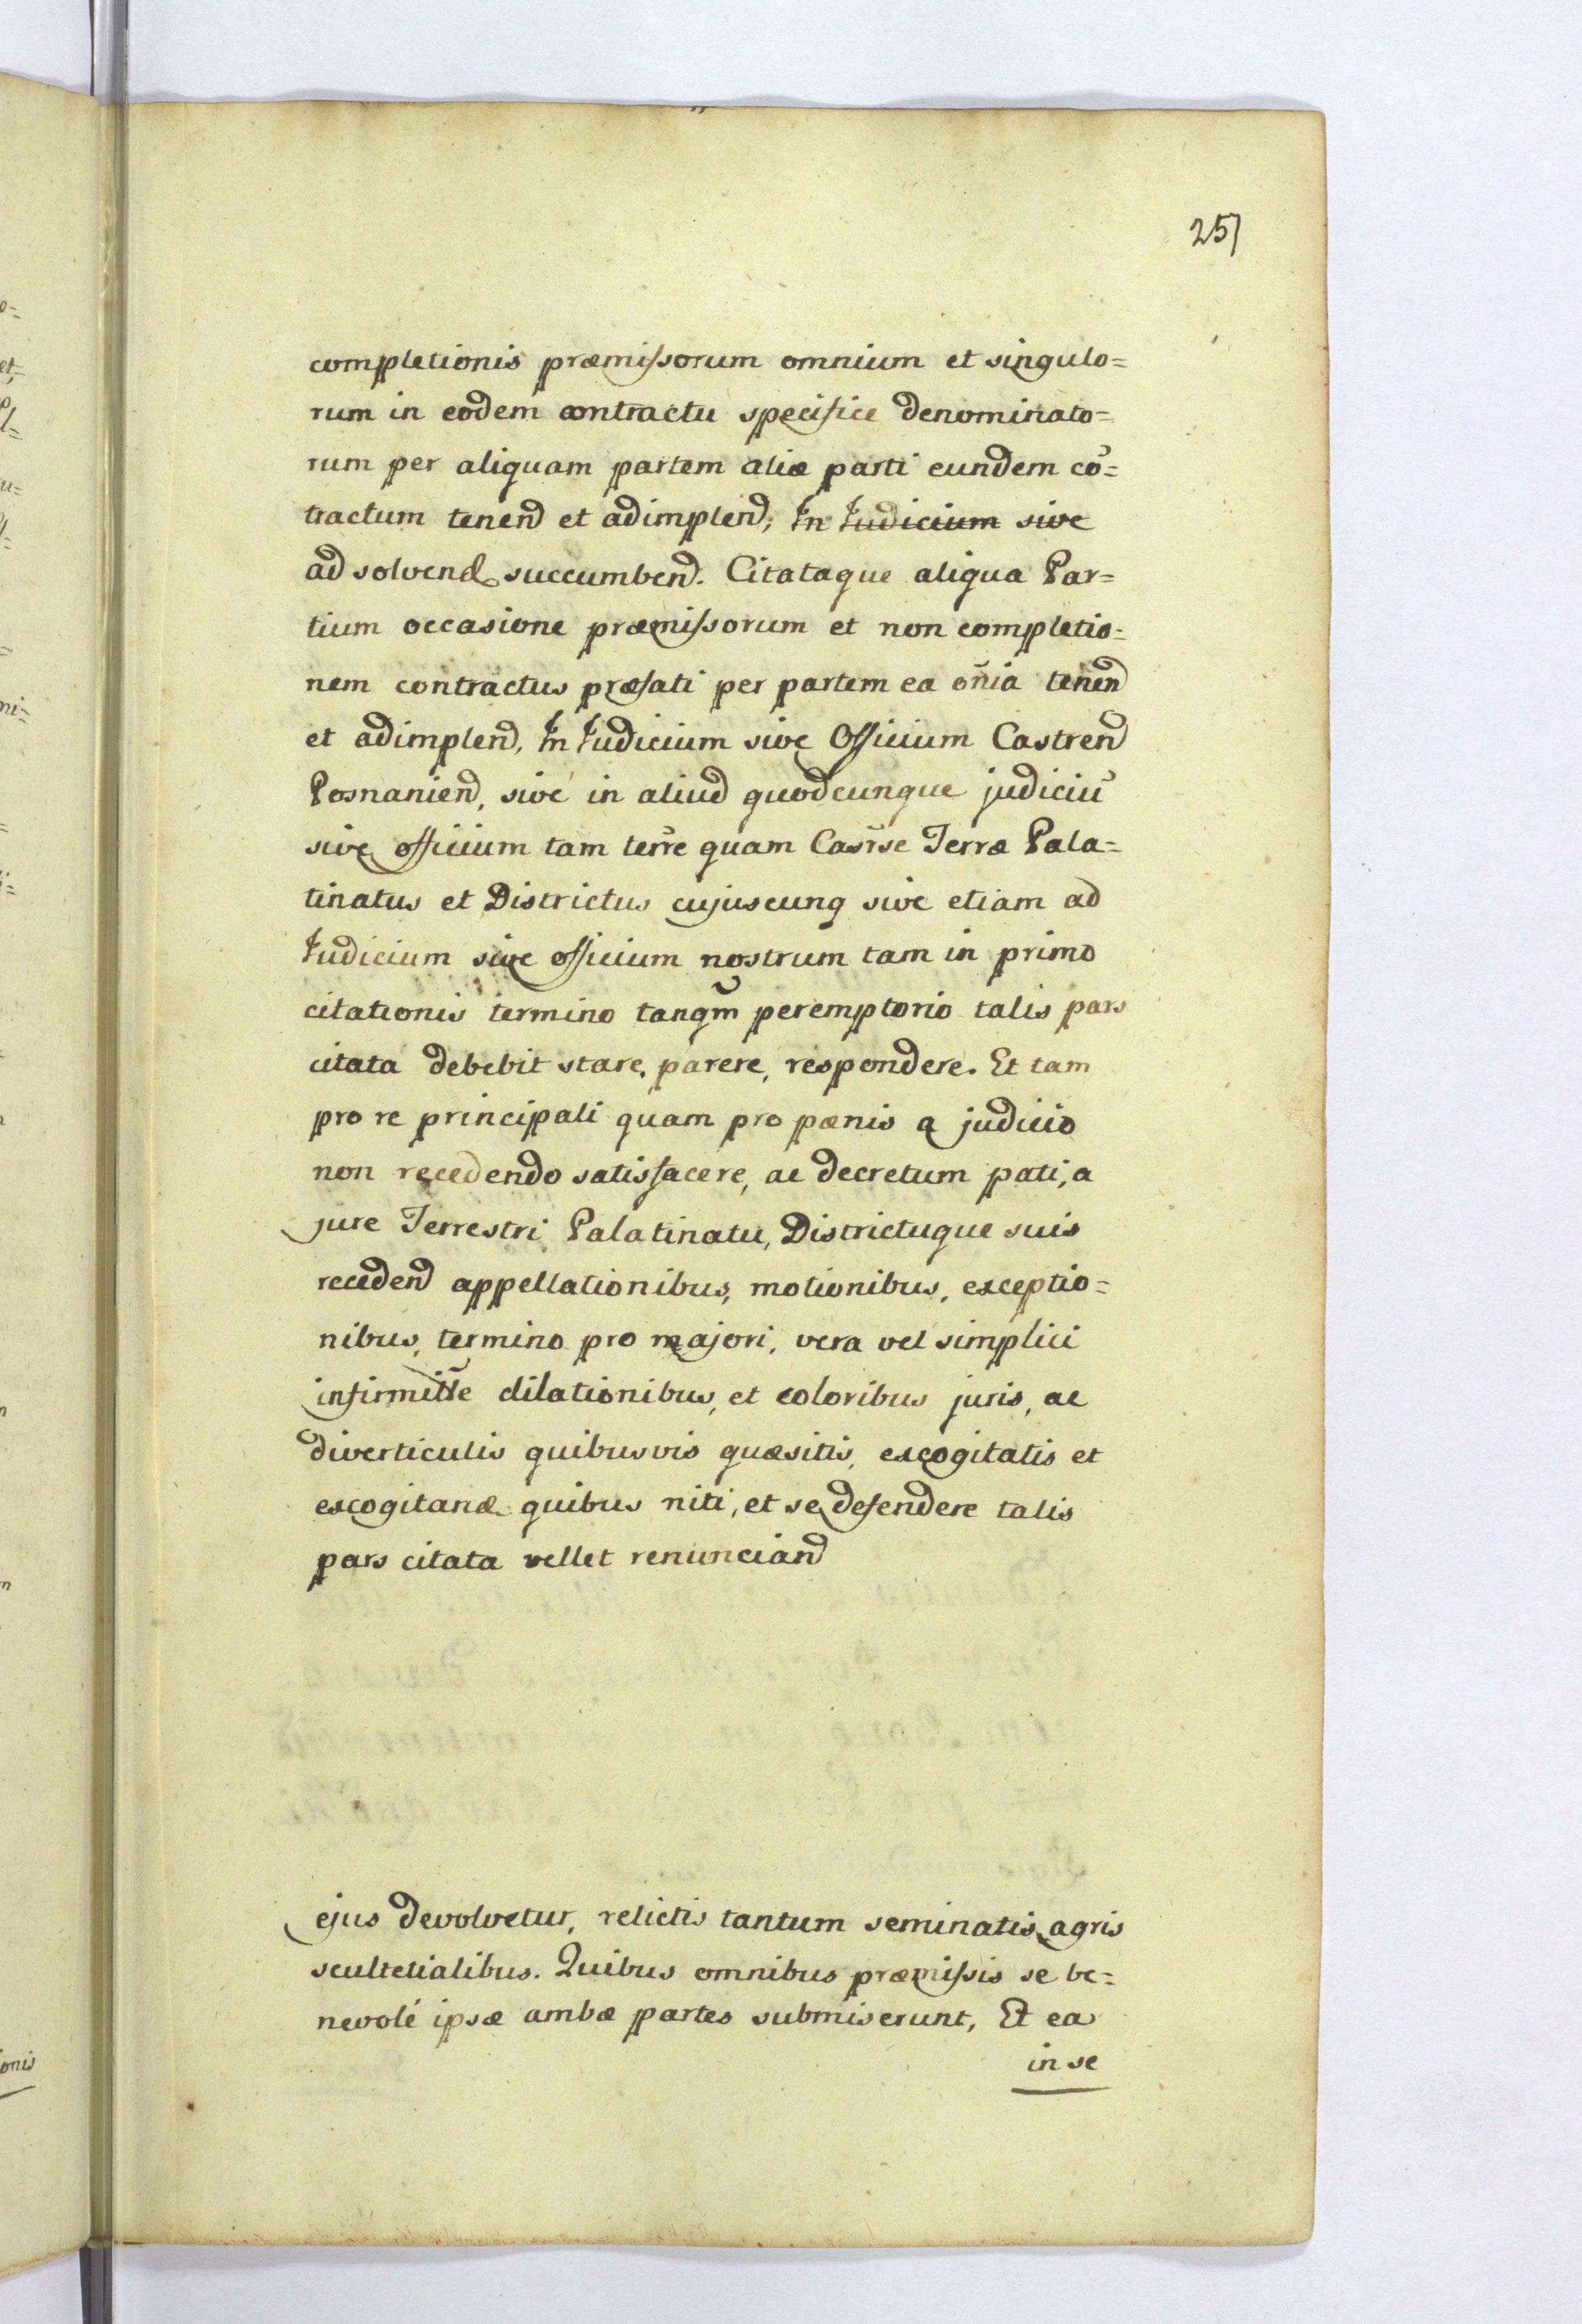 251
completionis præmissorum omnium et singulo=
rum in eodem contractu specifice denominato=
rum per aliquam partem aliæ parti eundem cō=
tractum tenend et adimplend, In Iudicium sive
ad solvend succumbend. Citataque aliqua Par=
tium occasione præmissorum et non completio=
nem contractus præfati per partem ea oñia tenen
et adimplend, In Iudicium sive Officium Castrend
Posnaniend, sive in aliud quodcunque judiciū
sive officium tam terre quam Casrse Terræ Pala=
tinatus et Districtus cujuscunq sive etiam ad
Iudicium sive officium nostrum tam in primo
citationis termino tanqm̃ peremptorio talis pars
citata debebit stare, parere, respondere. Et tam
pro re principali quam pro pænis a judicio
non recedendo satisfacere, ac decretum pati, a
jure Terrestri Palatinatu, Districtuque suis
recedend appellationibus, motionibus, exceptio=
nibus, termino pro majori, vera vel simplici
infirmitte dilationibus, et coloribus juris, ac
diverticulis quibusvis quæsitis, excogitatis et
excogitand quibus niti, et se defendere talis
pars citata vellet renunciand
ejus devolvetur, relictis tantum seminatis agris
scultetialibus. Quibus omnibus præmissis se be=
nevolé ipsæ ambæ partes submiserunt, Et ea
in se